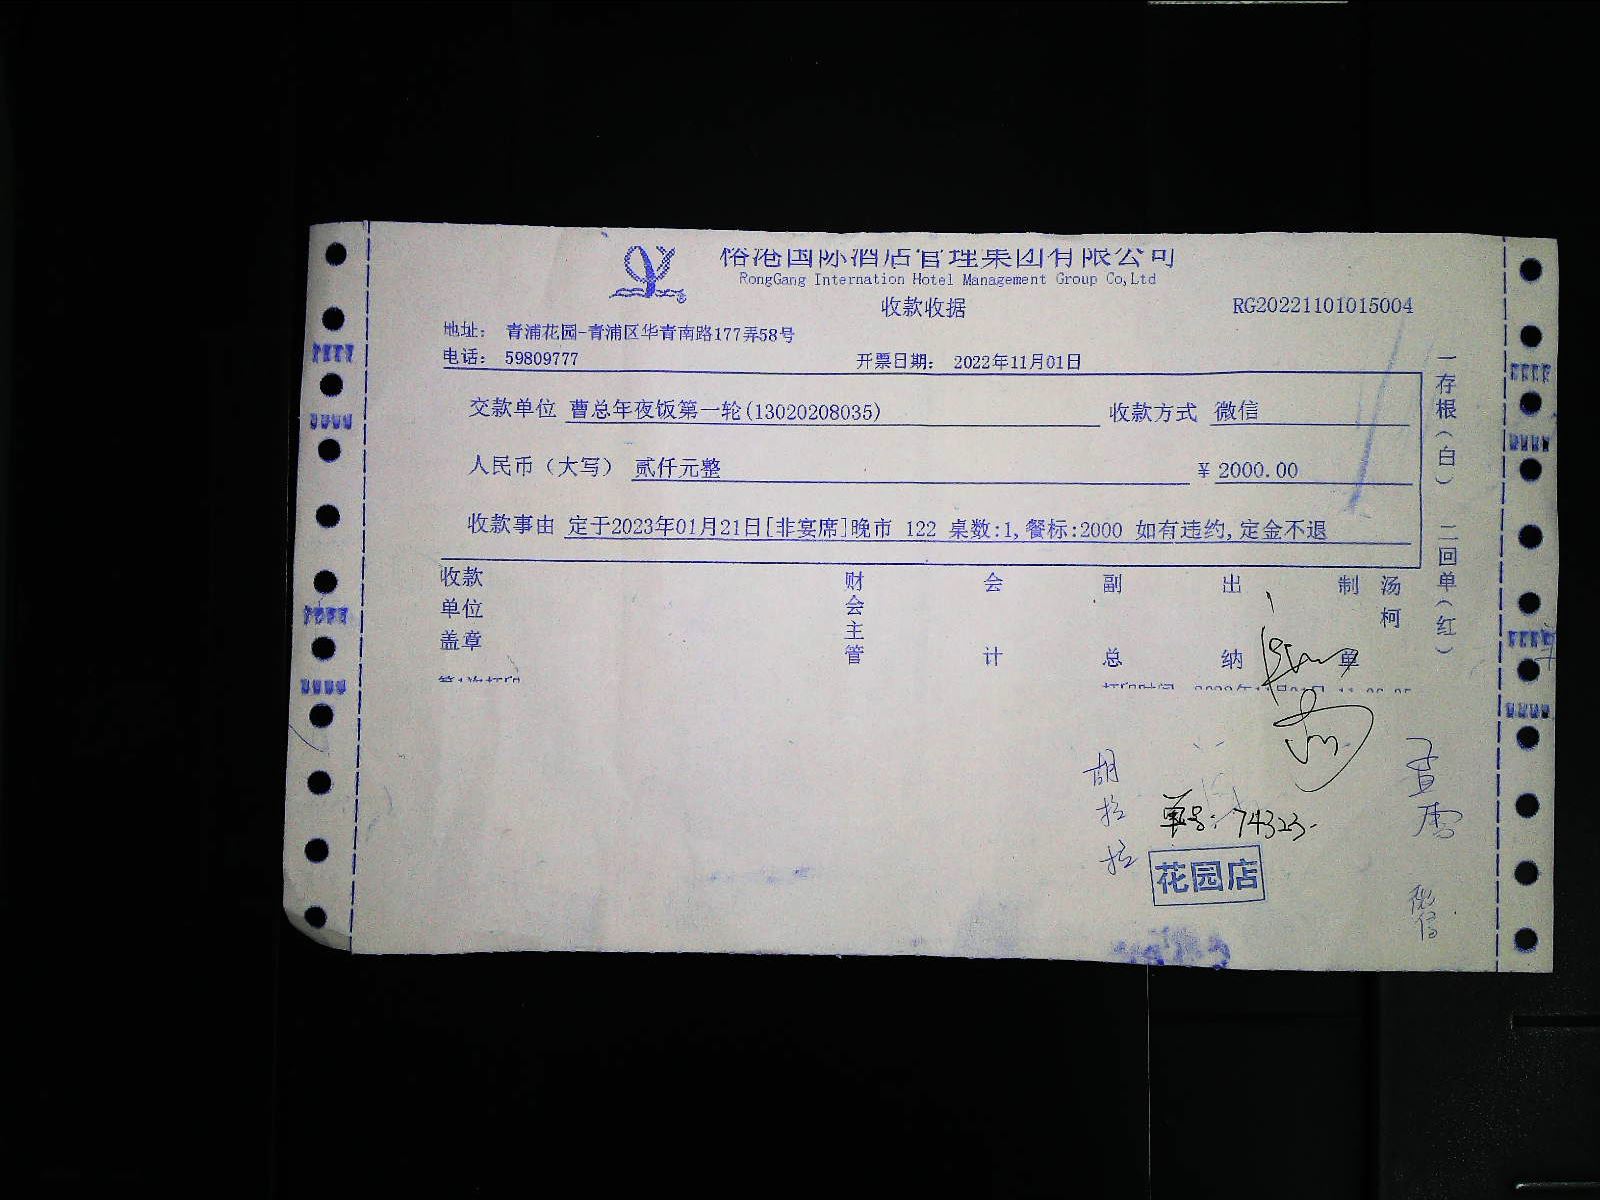 俗港国际酒店管理集团有限公司
RongGang Internation Hotel Management Group Co,Ltd
收款收据
RG20221101015004
地址： 青浦花园-青浦区华青南路177弄58号
电话： 59809777 开票日期： 2022年11月01日
交款单位 曹总年夜饭第一轮(13020208035) 收款方式 微信
人民币（大写） 贰仟元整 ￥2000.00
收款事由 定于2023年01月21日[非宴席]晚市 122 桌数:1,餐标:2000 如有违约,定金不退
收款单位盖章 财会主管 会计 副总 出纳 制单 汤柯
一存根（白） 二回单（红）
第1次打印
胡拉拉
单号：74323.
花园店
微信